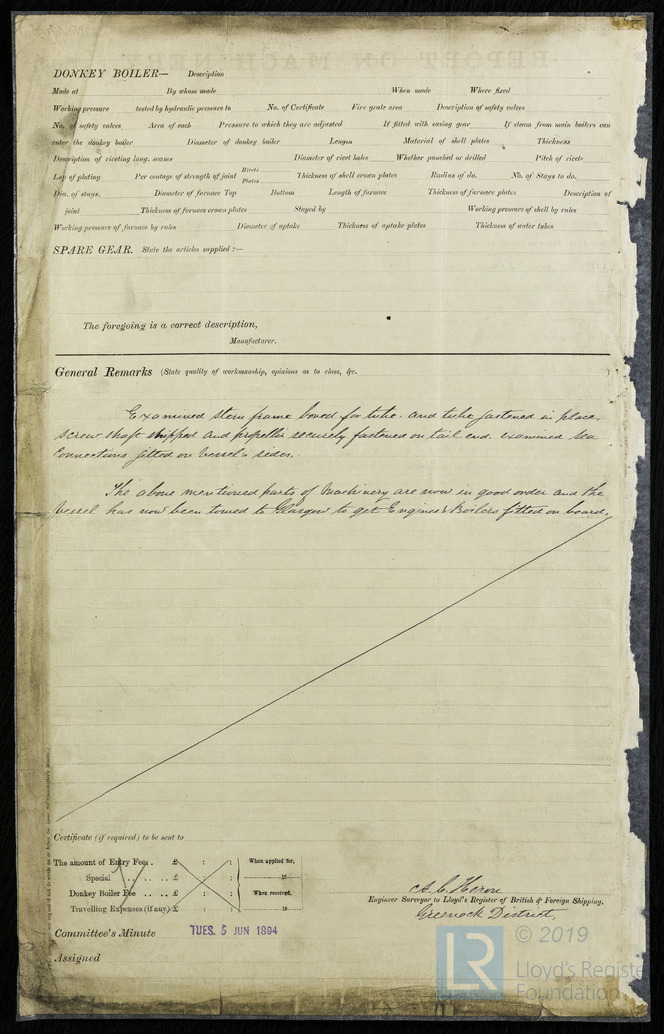 DONKEY BOILER— Description
Made at By whom made When made Where fixed
Working pressure tested by hydraulic pressure to No. of Certificate Fire grate area Description of safety valves
No. of safety valves Area of each Pressure to which they are adjusted If fitted with easing gear If steam from main boilers can
enter the donkey boiler Diameter of donkey boiler Length Material of shell plates Thickness
Description of riveting long. seams Diameter of rivet holes Whether punched or drilled Pitch of rivets
Lap of plating Per centage of strength of joint Rivets Plates Thickness of shell crown plates Radius of do. No. of Stays to do.
Dia. of stays. Diameter of furnace Top Bottom Length of furnace Thickness of furnace plates Description of
joint Thickness of furnace crown plates Stayed by Working pressure of shell by rules
Working pressure of furnace by rules Diameter of uptake Thickness of uptake plates Thickness of water tubes
SPARE GEAR. State the articles supplied :—
The foregoing is a correct description,
Manufacturer.
General Remarks (State quality of workmanship, opinions as to class, &c. )
Examined stern frame bored for tube. and tube fastened in place.
screw shaft shipped and propeller securely fastened on tail end. examined sea
connections fitted on vessel's sides.
The above mentioned parts of Machinery are now in good order and the
vessel has now been towed to Glasgow to get Engines & Boilers fitted on board.
Certificate (if required) to be sent to
The amount of Entry Fee . . £ : : When applied for,
Special . . . . £ : : 18
Donkey Boiler Fee . . . . £ : : When received,
Travelling Expenses (if any) £ : : 18
A. C. Heron
Engineer Surveyor to Lloyd's Register of British & Foreign Shipping.
Greenock District,
Committee's Minute TUES. 5 JUN 1894
Assigned
LR © 2019
Lloyd's Register
Foundation